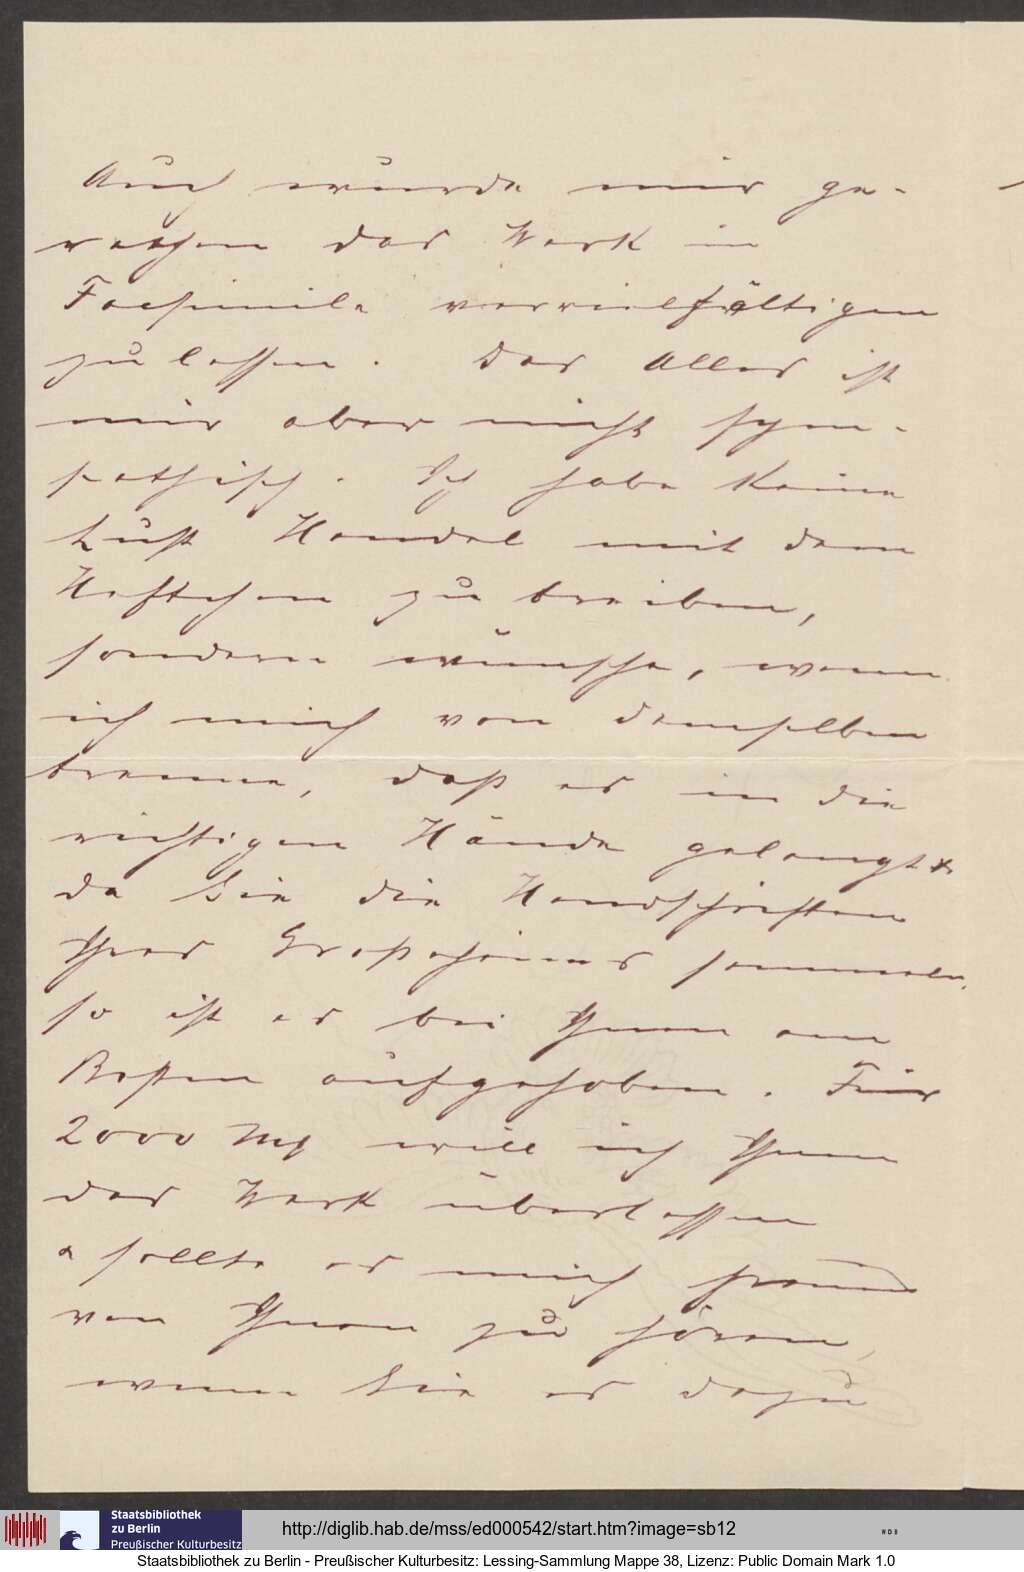 Auch wurde mir ge-
rathen das Werk in
Facsimile vervielfältigen
zu lassen. Das Alles ist
mir aber nicht sym-
pathisch. Ich habe keine
Lust Handel mit dem
Heftchen zu treiben,
sondern wünsche, wenn
ich mich von demselben
trenne, daß es in die
richtigen Hände gelangt &
da Sie die Handschriften
Ihres Großoheims sammeln,
so ist es bei Ihnen am
Besten aufgehoben. Für
2000 M will ich Ihnen
das Werk überlassen
& sollte es mich freuen
von Ihnen zu hören,
wenn Sie es dazu
Staatsbibliothek
zu Berlin
Preußischer Kulturbesitz
http://diglib.hab.de/mss/ed000542/start.htm?image=sb12
WDB
Staatsbibliothek zu Berlin - Preußischer Kulturbesitz: Lessing-Sammlung Mappe 38, Lizenz: Public Domain Mark 1.0